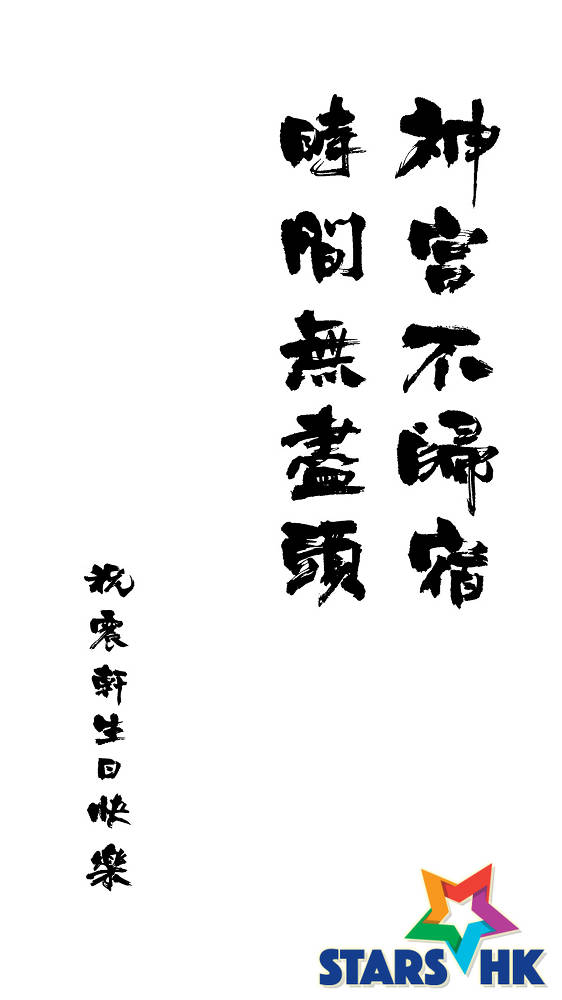 神宮不歸宿
時間無盡頭
祝震軒生日快樂
STARS HK